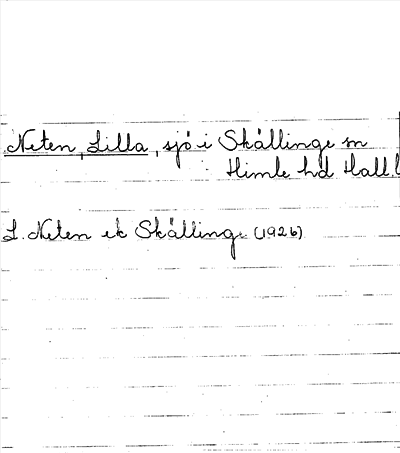 Neten, Lilla, sjö i Skällinge sn
Himle hd Hall.
L. Neten ek Skällinge (1926)